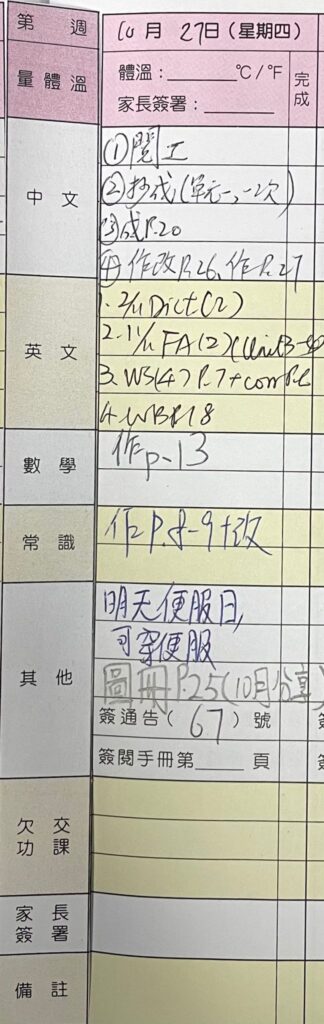 第 週
10月 27日(星期四)
量體溫
體溫:________℃/℉
家長簽署:________
完成
中文
①閱工
②抄成(單元一、一次)
③成P.20
④作改P.26、作P.27
英文
1. 2/11 Dict(2)
2. 1/11 FA(2)(Unit3-
3. WS(4) P.7+corr P.6
4. WB P.18
數學
作p-13
常識
作P.8-9+改
其他
明天便服日,
可穿便服
圖冊P.25(10月分享)
簽通告(67)號
簽閱手冊第____頁
欠交功課
家長簽署
備註